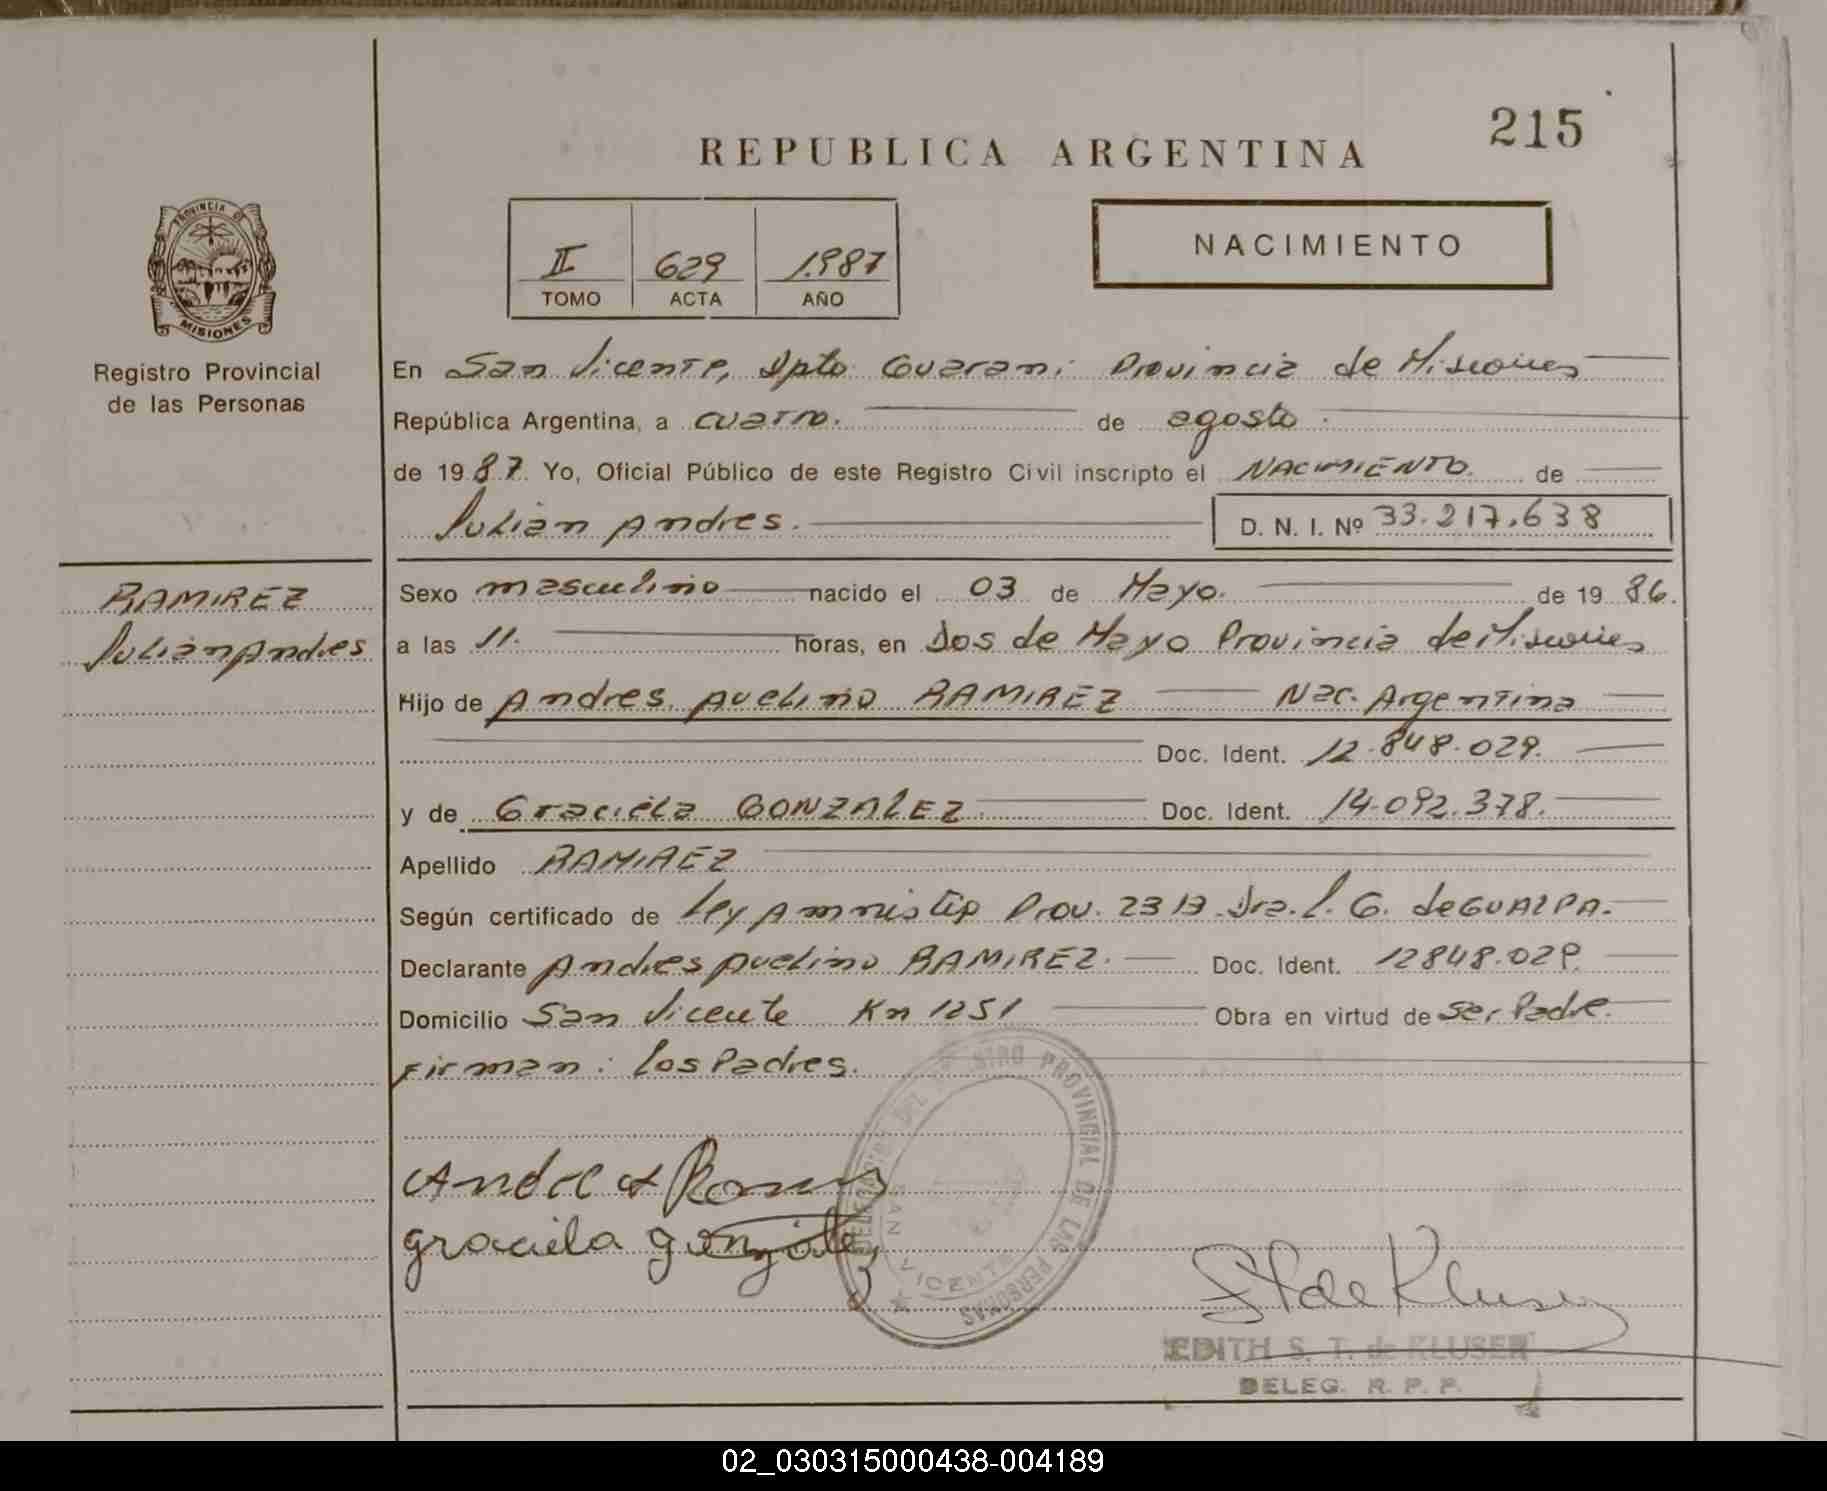 215
REPUBLICA ARGENTINA
II 629 1987
TOMO ACTA AÑO
NACIMIENTO
PROVINCIA DE
MISIONES
Registro Provincial
de las Personas
En San Vicente, Dpto Guarani Provincia de Misiones
República Argentina, a cuatro. de agosto.
de 1987. Yo, Oficial Público de este Registro Civil inscripto el NACIMIENTO. de
Julian Andres. D. N. I. Nº 33.217.638
RAMIREZ
Julian Andres
Sexo masculino nacido el 03 de Mayo. de 1986.
a las 11. horas, en Dos de Mayo Provincia de Misiones
Hijo de Andres Avelino RAMIREZ Nac. Argentina
Doc. Ident. 12.848.029.
y de Graciela GONZALEZ. Doc. Ident. 14.092.378.
Apellido RAMIREZ
Según certificado de Ley Amnistia Prov. 2313. Dra. L. G. de GUALPA.
Declarante Andres Avelino RAMIREZ. Doc. Ident. 12848.029.
Domicilio San Vicente Km 1251 Obra en virtud de ser Padre.
Firman: los Padres.
graciela gonzalez
REGISTRO PROVINCIAL DE LAS PERSONAS
SAN VICENTE
EDITH S. T. de KLUSER
DELEG. R. P. P.
02_030315000438-004189